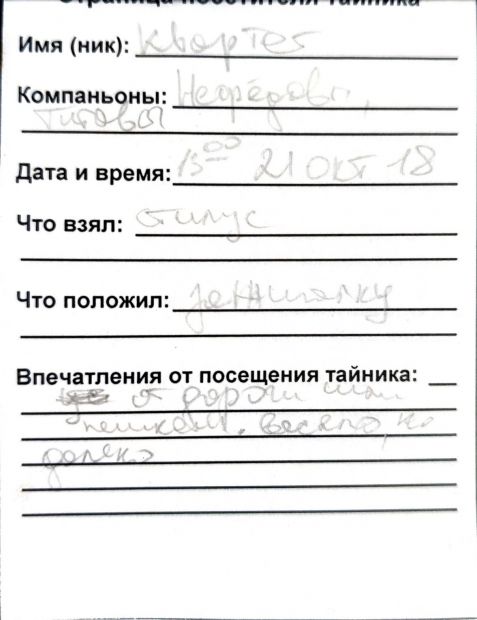 Страница посетителя тайника
Имя (ник): Квартет
Компаньоны: Нефёдовы,
Титовы
Дата и время: 15⁰⁰ 21 окт 18
Что взял: стилус
Что положил: зажигалку
Впечатления от посещения тайника:
от дороги шли
пешком. Весело, но
далеко